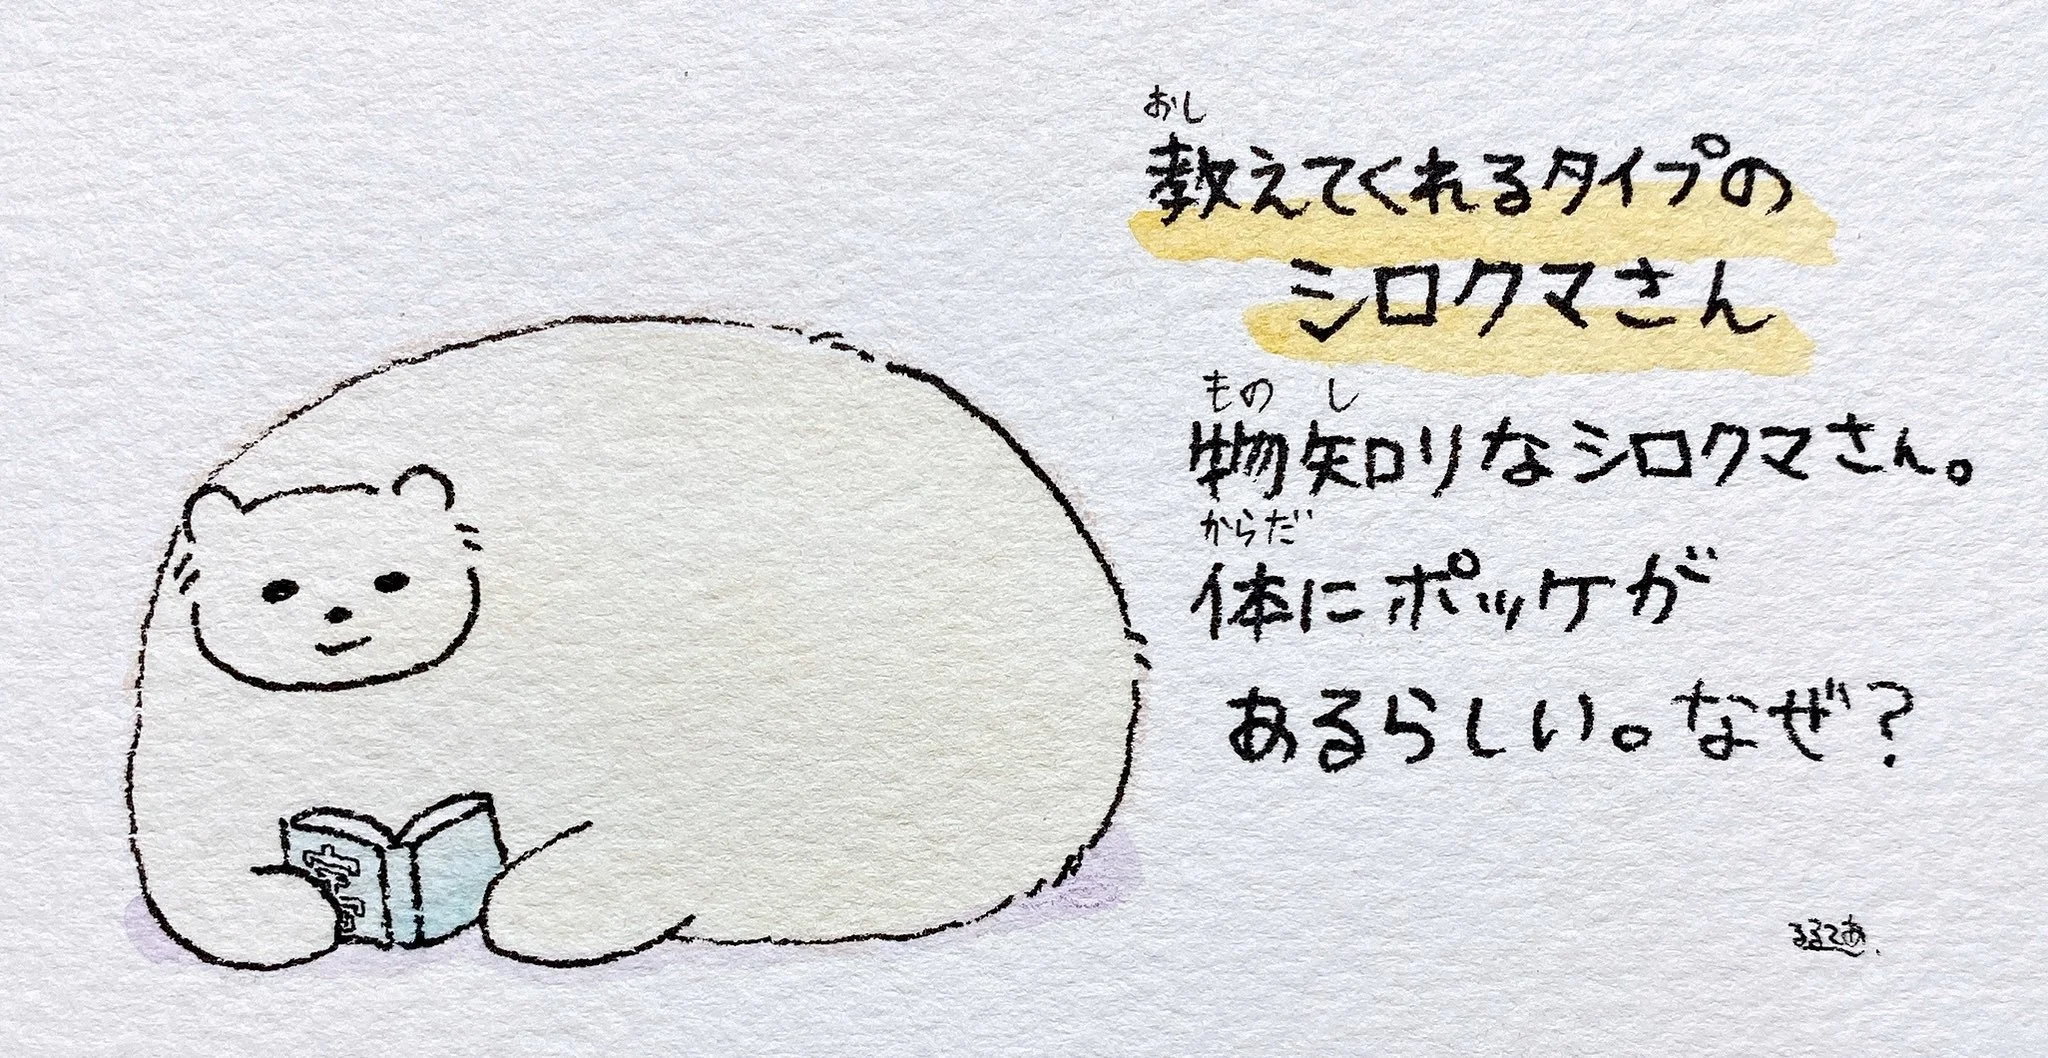 おし
教えてくれるタイプの
シロクマさん
ものし
物知りなシロクマさん。
からだ
体にポッケが
あるらしい。なぜ？
るるてあ